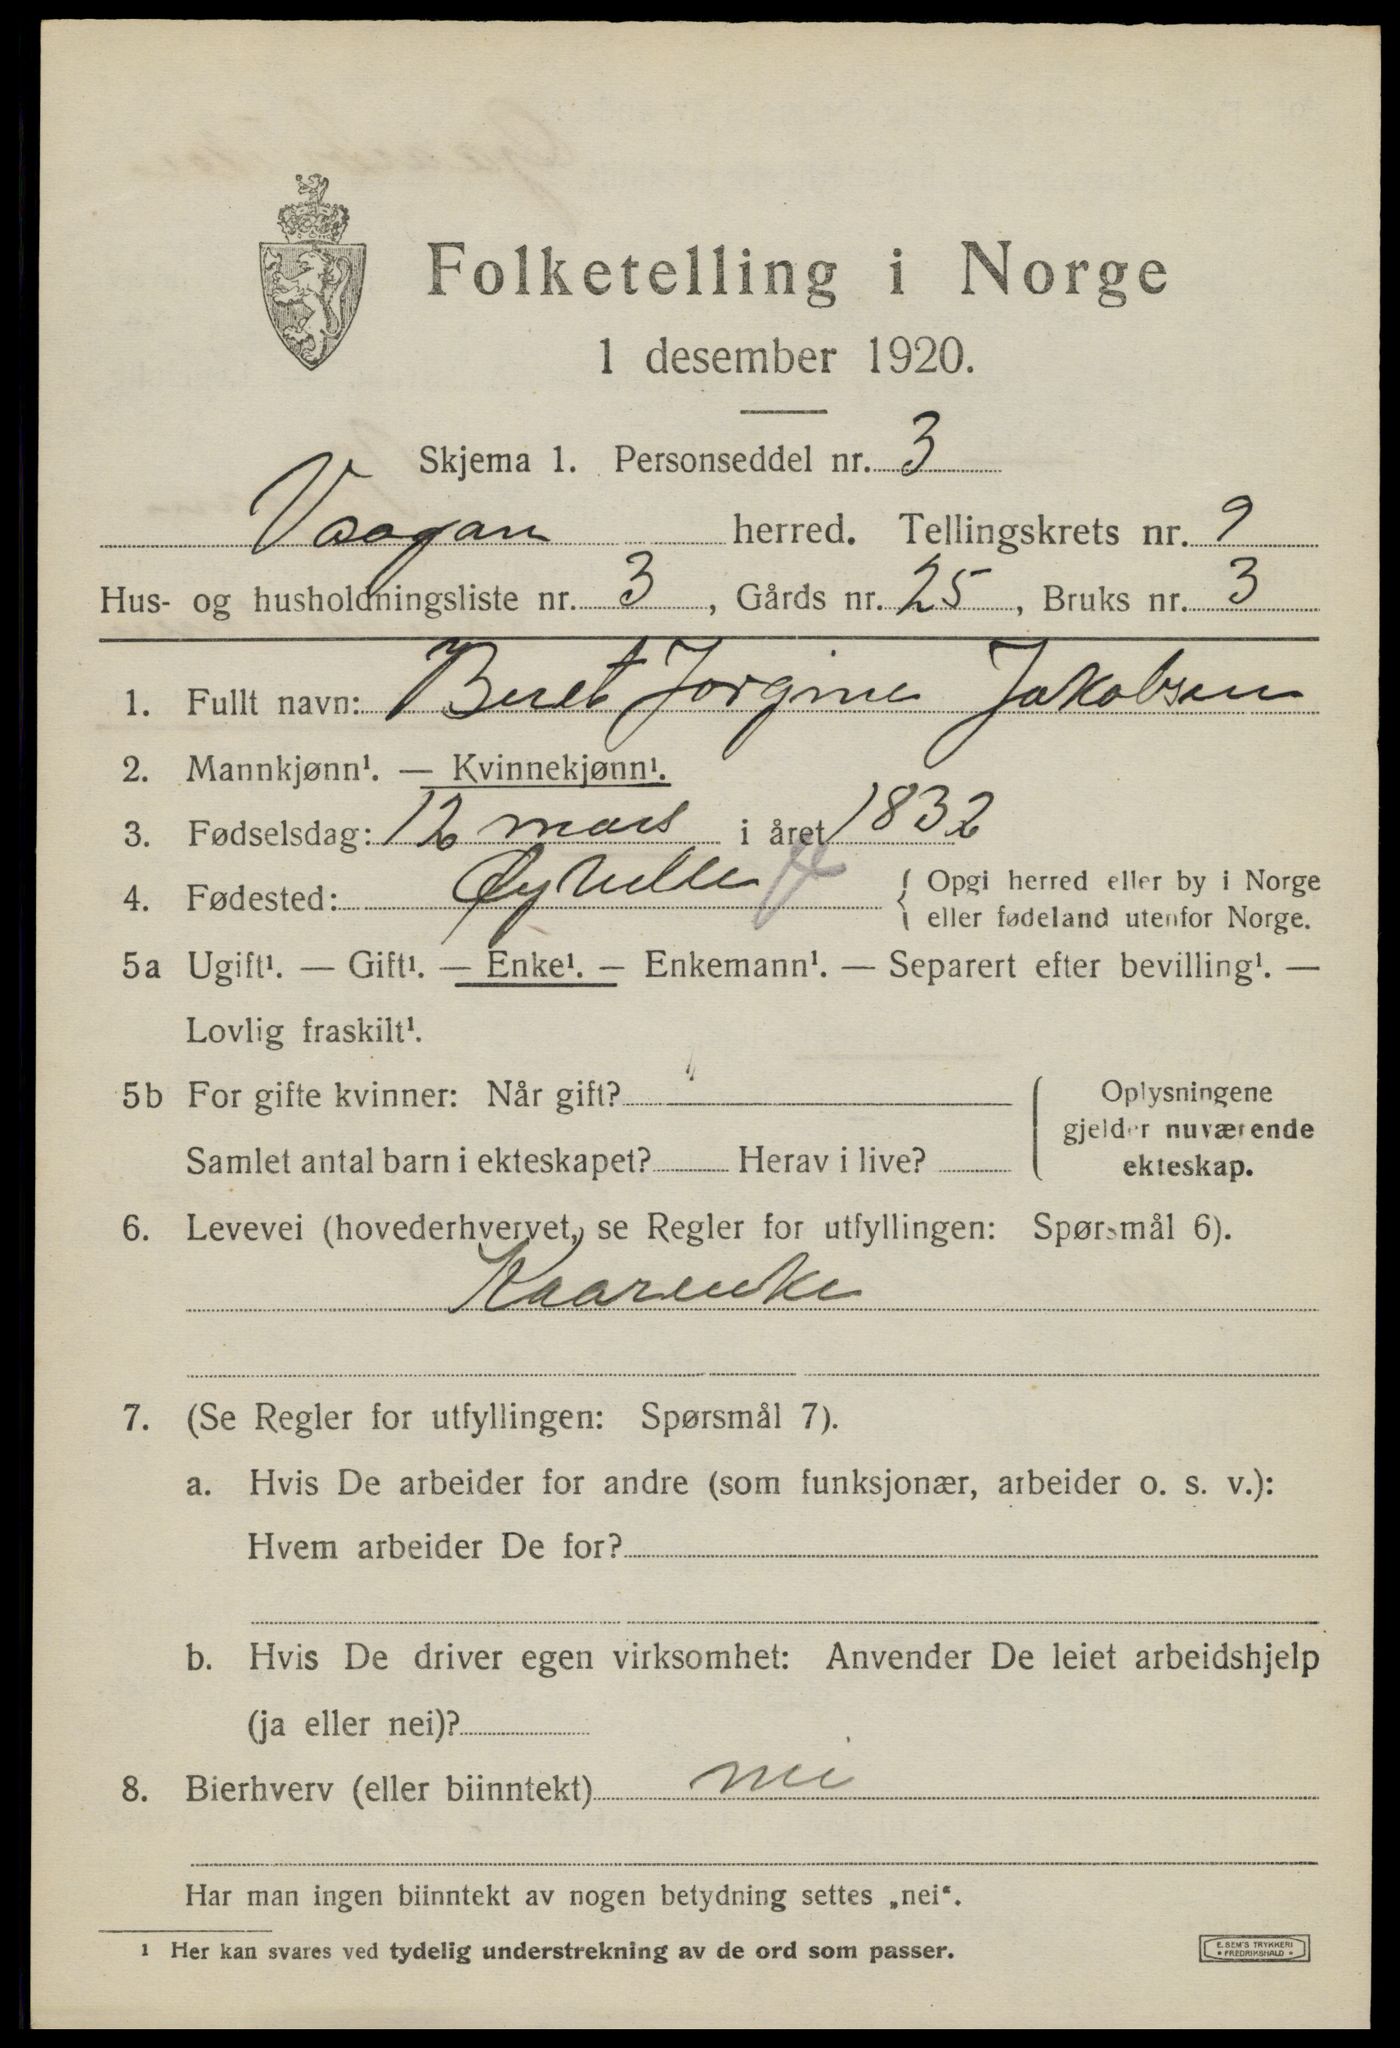 Folketelling i Norge
1 desember 1920.
Skjema 1. Personseddel nr. 3
Vaagan herred. Tellingskrets nr. 9
Hus- og husholdningsliste nr. 3, Gårds nr. 25, Bruks nr. 3
1. Fullt navn: Beret Jorgine Jakobsen
2. Mannkjønn¹. — Kvinnekjønn¹.
3. Fødselsdag: 12 mars i året 1832
4. Fødested: { Opgi herred eller by i Norge
eller fødeland utenfor Norge.
5a Ugift¹. — Gift¹. — Enke¹. — Enkemann¹. — Separert efter bevilling¹. —
Lovlig fraskilt¹.
5b For gifte kvinner: Når gift? Oplysningene
gjelder nuværende
Samlet antal barn i ekteskapet? Herav i live? ekteskap.
6. Levevei (hovederhvervet, se Regler for utfyllingen: Spørsmål 6).
Kaarenke
7. (Se Regler for utfyllingen: Spørsmål 7).
a. Hvis De arbeider for andre (som funksjonær, arbeider o. s. v.):
Hvem arbeider De for?
b. Hvis De driver egen virksomhet: Anvender De leiet arbeidshjelp
(ja eller nei)?
8. Bierhverv (eller biinntekt) nei
Har man ingen biinntekt av nogen betydning settes „nei“.
¹ Her kan svares ved tydelig understrekning av de ord som passer.
E. SEM'S TRYKKERI
• FREDRIKSHALD •